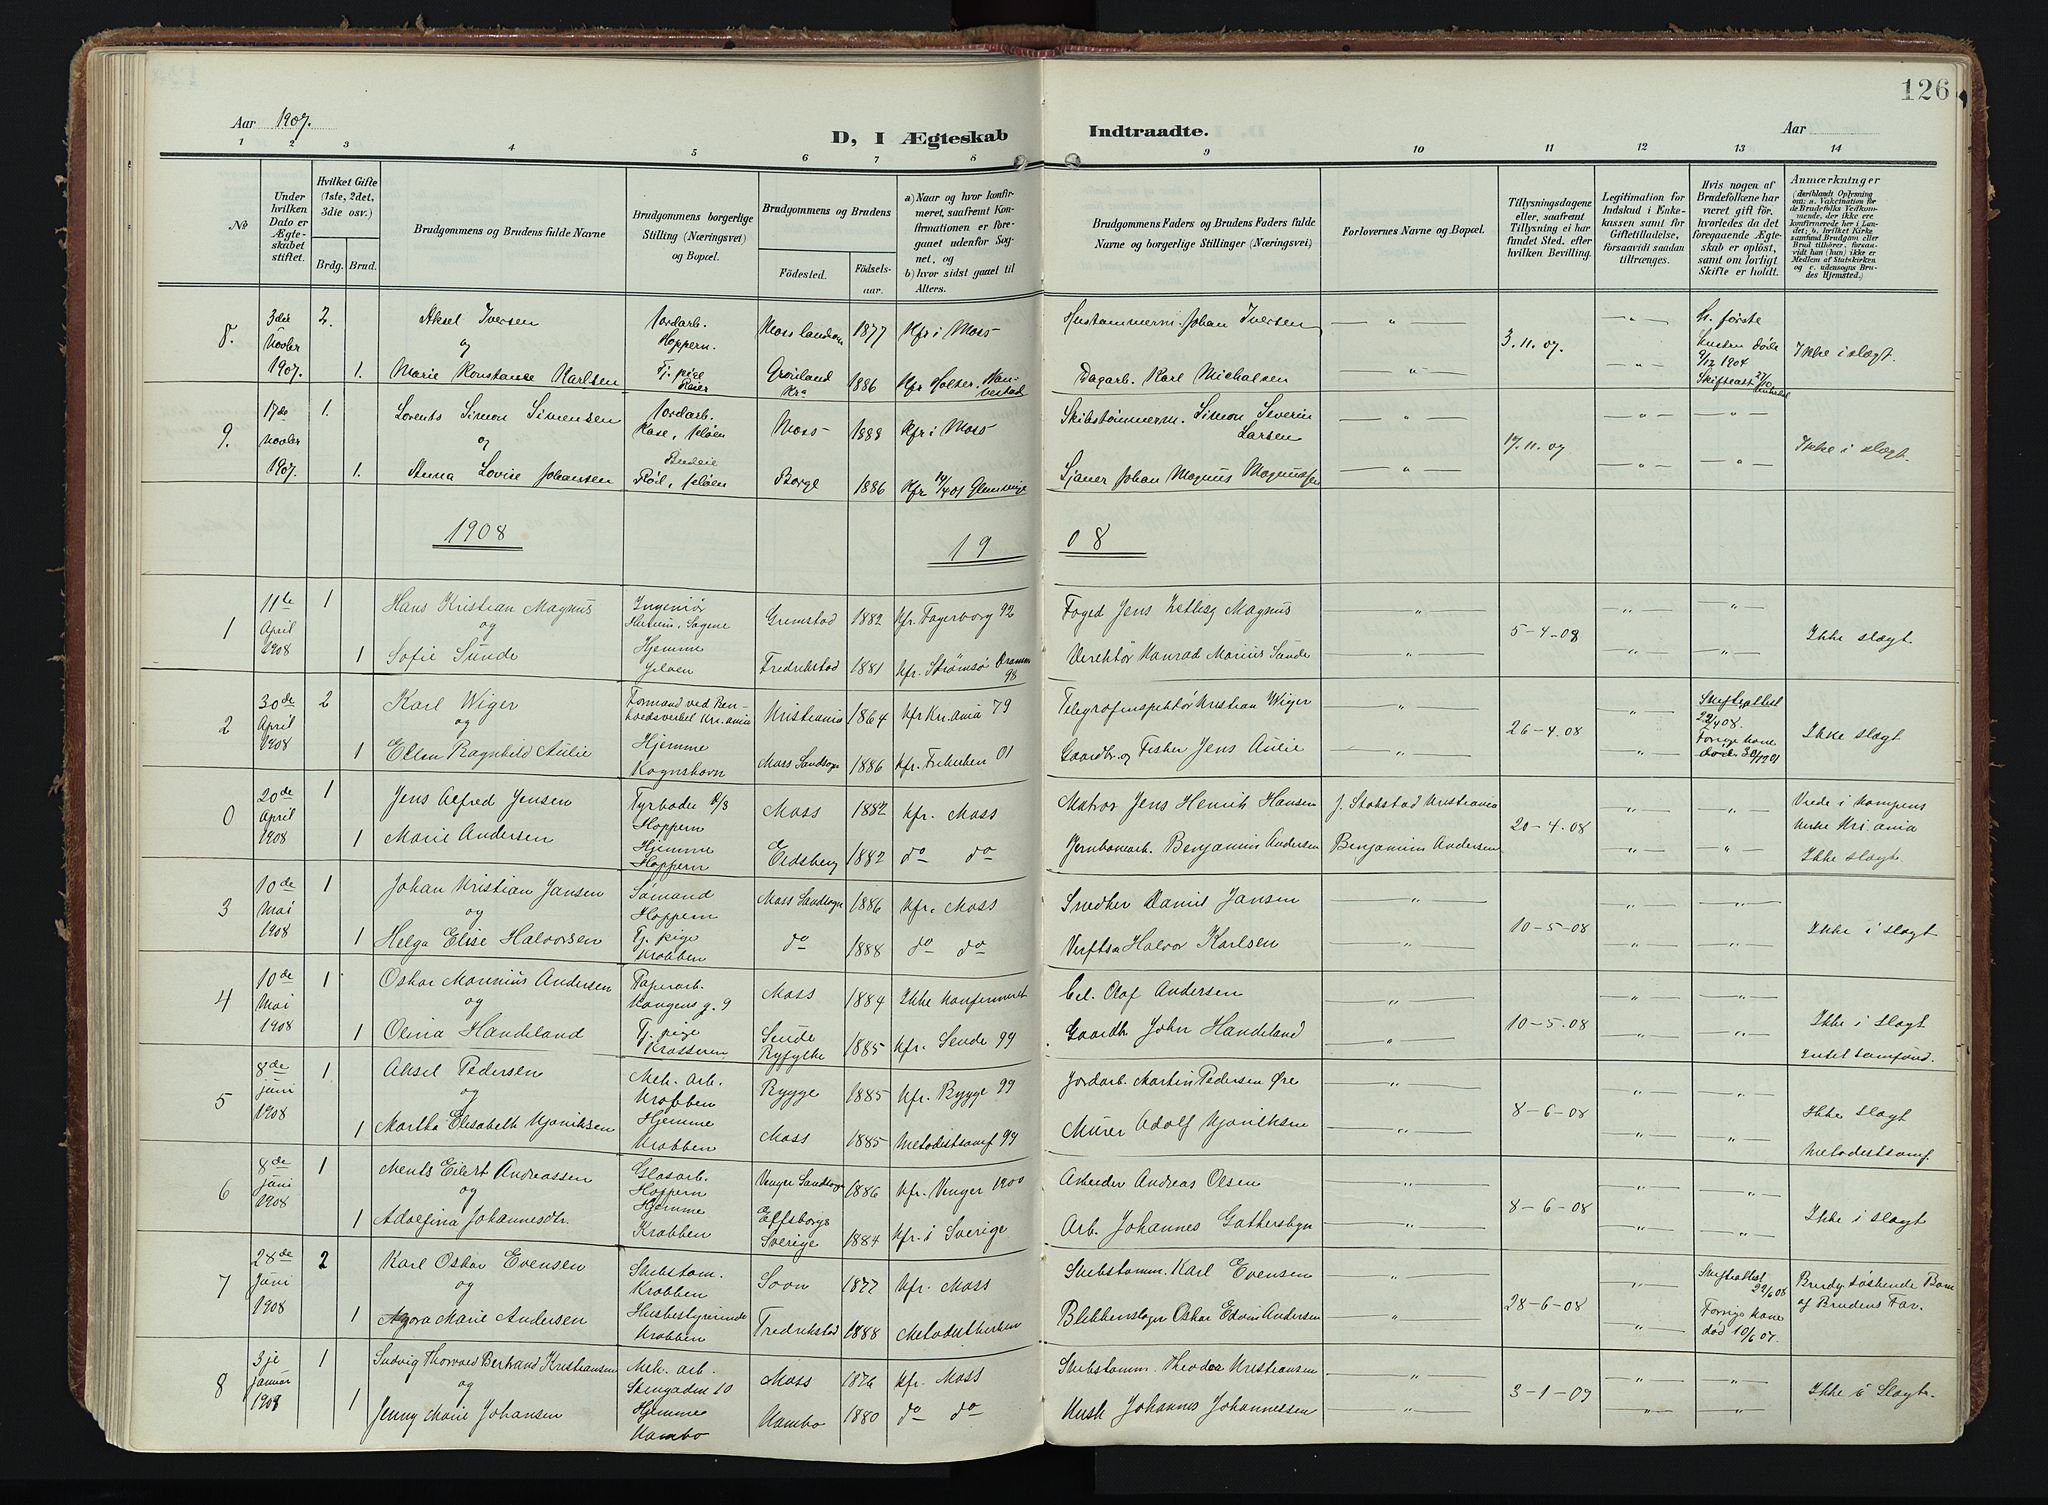 126
Aar 1907.
D, I Ægteskab Indtraadte.
Aar
1 2 3 4 5 6 7 8 9 10 11 12 13 14
No
Under hvilken Dato er Ægteskabet stiftet.
Hvilket Gifte (1ste, 2det, 3die osv.)
Brdg. Brud.
Brudgommens og Brudens fulde Navne
Brudgommens borgerlige Stilling (Næringsvei) og Bopæl.
Brudgommens og Brudens
Fødested. Fødselsaar.
a) Naar og hvor konfirmeret, saafremt Konfirmationen er foregaaet udenfor Sognet, og
b) hvor sidst gaaet til Alters.
Brudgommens Faders og Brudens Faders fulde Navne og borgerlige Stillinger (Næringsvei)
Forlovernes Navne og Bopæl.
Tillysningsdagene eller, saafremt Tillysning ei har fundet Sted, efter hvilken Bevilling.
Legitimation for Indskud i Enkekassen samt for Giftetilladelse, forsaavidt saadan tiltrænges.
Hvis nogen af Brudefolkene har været gift før, hvorledes da det foregaaende Ægteskab er opløst, samt om lovligt Skifte er holdt.
Anmærkninger
8. 3die Novbr 1907. 2. Aksel Iversen Jordarb. Hoppern. Moss landsogn 1877 Kfr i Moss Hustømmerm. Johan Iversen 3.11.07. første Hustru døde 9/12 1904 Skifteatt. Ikke i slægt.
og
1. Marie Konstanse Karlsen Tj. pige Grønland Kra 1886 Kfr Dagarb. Karl Michalsen
9. 17de Novber 1907. 1. Lorents Simon Simensen Jordarb. Kase, Jeløen Moss 1888 Kfr i Moss Skibstømmerm. Simon Severin Larsen 17.11.07 Ikke i slægt.
og
1. Anna Lovise Johansen Budeie Rød, Jeløen Borge 1886 Kfr Glemminge Sjauer Johan Magnus Magnussen
1908 1908
1 11te April 1908 1 Hans Kristian Magnus Ingeniør Grimstad 1882 Kfr. Fagerborg 92 Foged Jens Zetlitz Magnus 5-4-08 Ikke slægt.
og
1 Sofie Sunde Hjemme Jeløen Fredrikstad 1881 Kfr. Strømsø Drammen 98 Direktør Konrad Marius Sunde
2 30de April 1908 2 Karl Wiger Formand ved Renholdsverket Kr.ania Kristiania 1864 Kfr Kr.ania 79 Telegrafinspektør Kristian Wiger 26-4-08 Skifteattest 22/4 08. Forrige kone døde Ikke slægt.
og
1 Ellen Ragnhild Aulie Hjemme Kognshavn Moss Landsogn 1886 Kfr. 01 Gaardbr. og Fisker Jens Aulie
0 20de April 1908 1 Jens Alfred Jensen Fyrbøder D/S Hoppern Moss 1882 Kfr. Moss Matros Jens Henrik Hansen J. Stokstad Kristiania 20-4-08 Viede i Kampens Kirke Kr.ania
1 Marie Andersen Hjemme Hoppern Eidsberg 1882 do do Jernbanearb. Benjamin Andersen Benjamin Andersen Ikke slægt.
3 10de Mai 1908 1 Johan Kristian Jansen Sømand Hoppern Moss Landsogn 1886 Kfr. Moss Snedker Daniel Jansen 10-5-08 Ikke i slægt
og
1 Helga Elise Halvorsen Tj. pige Krabben do 1888 do do Verftsa Halvor Karlsen
4 10de Mai 1908 1 Oskar Marinius Andersen Papirarb. Kongens g. 9 Moss 1884 Ikke konfirmeret Olaf Andersen 10-5-08 Ikke i slægt
og
1 Olina Handeland Tj. pige Krosseren Sande Ryfylke 1885 Kfr. Sande 99 Gaardb. John Handeland Intet samfund.
5 8de juni 1908 1 Aksel Pedersen Mek. arb. Krabben Rygge 1885 Kfr. Rygge 99 Jordarb. Martin Pedersen Øre 8-6-08 Ikke slægt
og
1 Martha Elisabeth Hjemme Krabben Moss 1885 Metodistsamf 99 Murer Adolf Metodistsamf.
6 8de juni 1908 1 Ments Eilert Andreassen Glasarb. Hoppern 1886 Kfr. 1900 Arbeider Andreas Olsen 8-6-08 Ikke i slægt
og
1 Adolfina Johannesdtr. Hjemme Krabben Elfsborgs Sverige 1884 Kfr. i Sverige Arb. Johannes
7 28de juni 1908 2 Karl Oskar Evensen Skibstøm. Krabben Soon 1877 Kfr. Moss Skibstømm. Karl Evensen 28-6-08 Skifteattest 22/6 08 Forrige kone død 10/6 07. Brudg. søskende Barn af Brudens Far.
og
1 Agora Marie Andersen Husbestyrerinde Krabben Fredrikstad 1888 Metodistkirken Blikkenslager Oskar Edvin Andersen
8 3je januar 1908 1 Ludvig Thorvald Bertrand Kristiansen Mek. arb. Stengaden 10 Moss 1876 Kfr. Moss Skibstømm. Theodor Kristiansen 3-1-09 Ikke i Slægt.
og
1 Jenny Marie Johansen Hjemme Kambo Kambo 1880 do do Kusk Johannes Johannessen